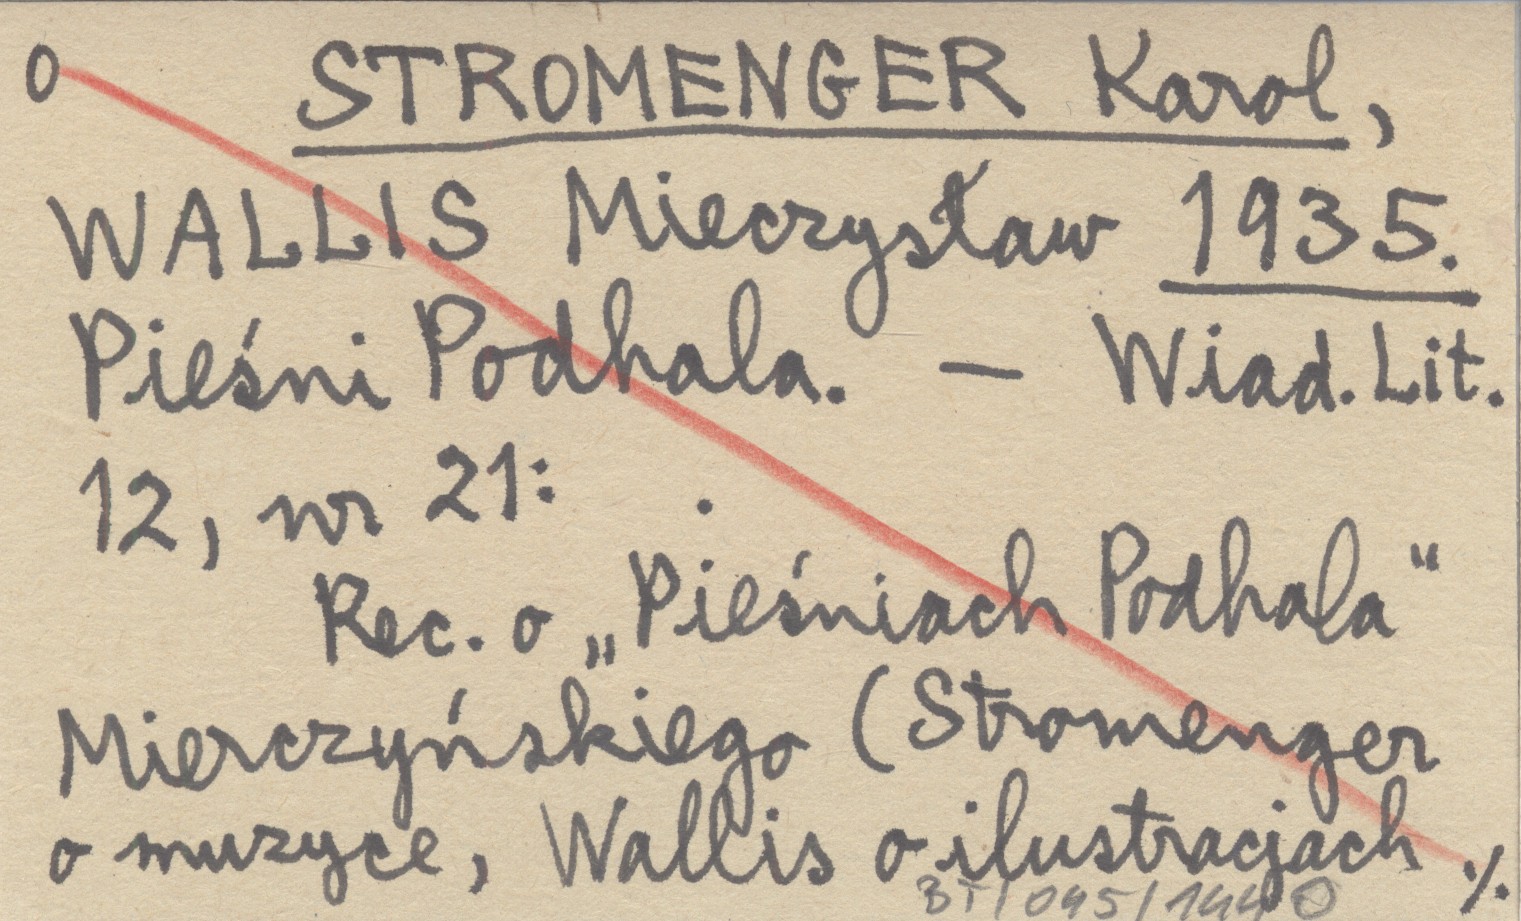 0 STROMENGER Karol,
WALLIS Mieczysław 1935.
Pieśni Podhala. — Wiad. Lit.
12, nr 21:
Rec. o „Pieśniach Podhala“
Mierczyńskiego (Stromenger
o muzyce, Wallis o ilustracjach ./.
BT/045/144